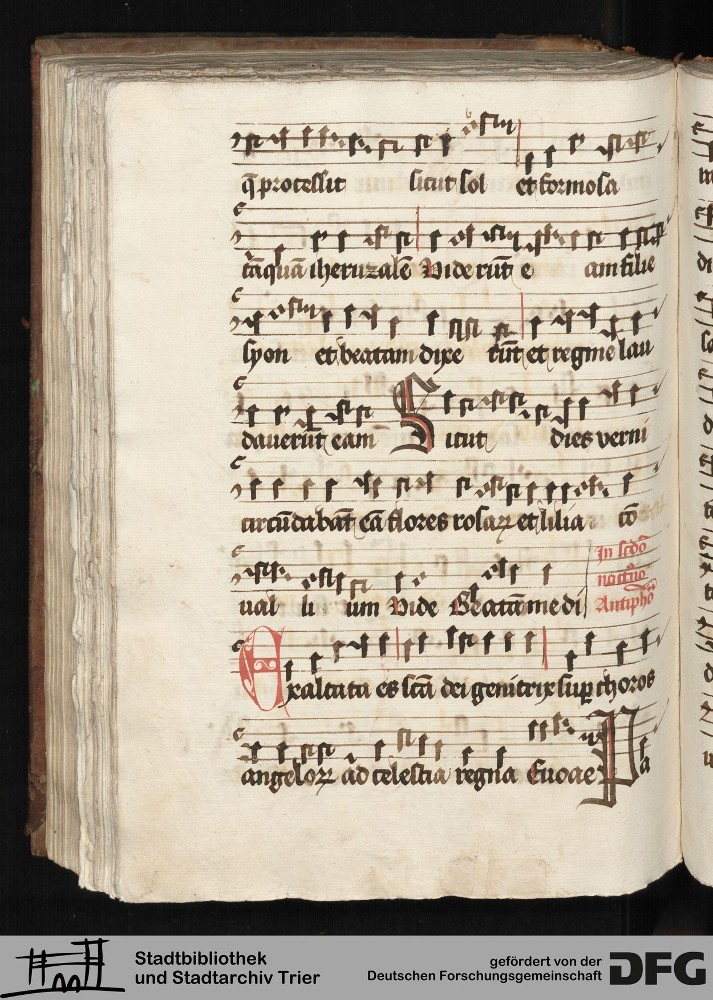 q̄ processit sicut sol et formosa
tāquā iheruzalē Viderūt e am filie
syon et beatam dixe rūt et regine lau
dauerūt eam Sicut dies verni
circūdabāt eā flores rosaꝝ et lilia cō
ual li um Vide Beatā me di
In scdo
noctuo
Antiphō
Exaltata es scā dei genitrix sup choros
angeloꝝ ad celestia regna Euouae Pa
Stadtbibliothek
und Stadtarchiv Trier
gefördert von der
Deutschen Forschungsgemeinschaft
DFG